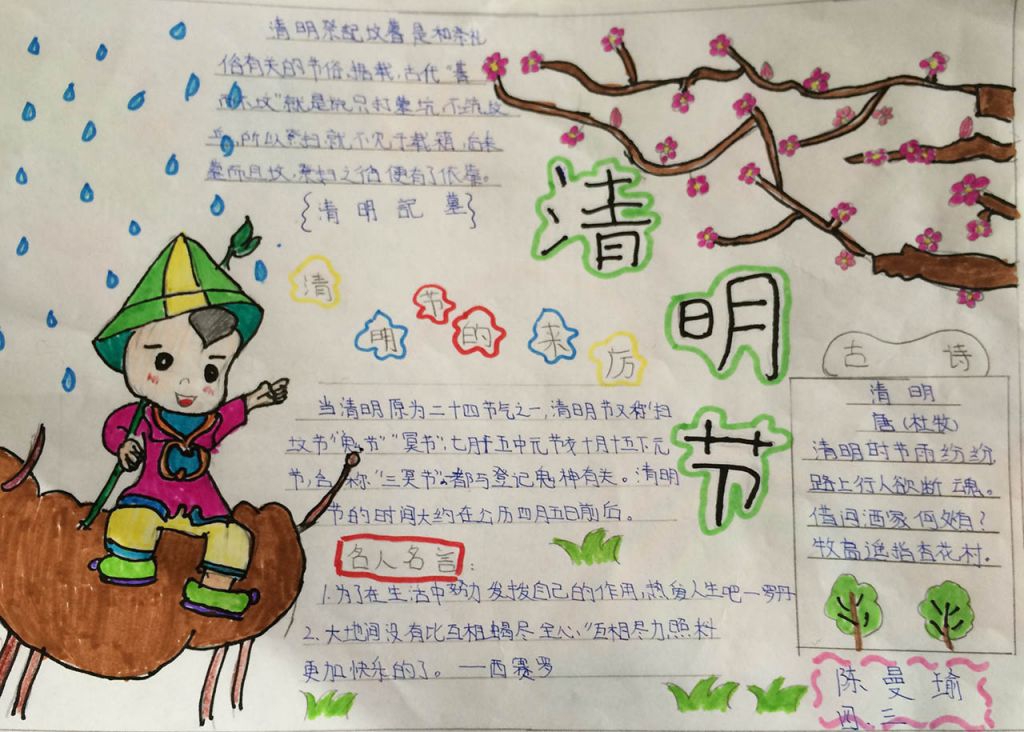 清明祭配坟暮是和祭礼
俗有关的节俗。据载,古代“墓
而不坟”就是说只打墓坑,不筑坟
丘,所以祭扫就不见于载籍,后来
墓而且坟,祭扫之俗便有了依
{清明記墓}
清明节
清明节的来历
当清明原为二十四节气之一,清明节又称“扫
坟节”“鬼节”“冥节”,七月十五中元节 十月十五下元
节,合称“三冥节”。都与登记鬼神有关。清明
节的时间大约在公历四月五日前后。
名人名言:
1.为了在生活中努力发拨自己的作用,热爱人生吧—罗丹
2.大地间没有比互相竭尽全心、互相尽力照料
更加快乐的了。 ——西赛罗
古诗
清明
唐(杜牧)
清明时节雨纷纷
路上行人欲断魂。
借问酒家何处有?
牧童遥指杏花村.
陈曼瑜
四.三